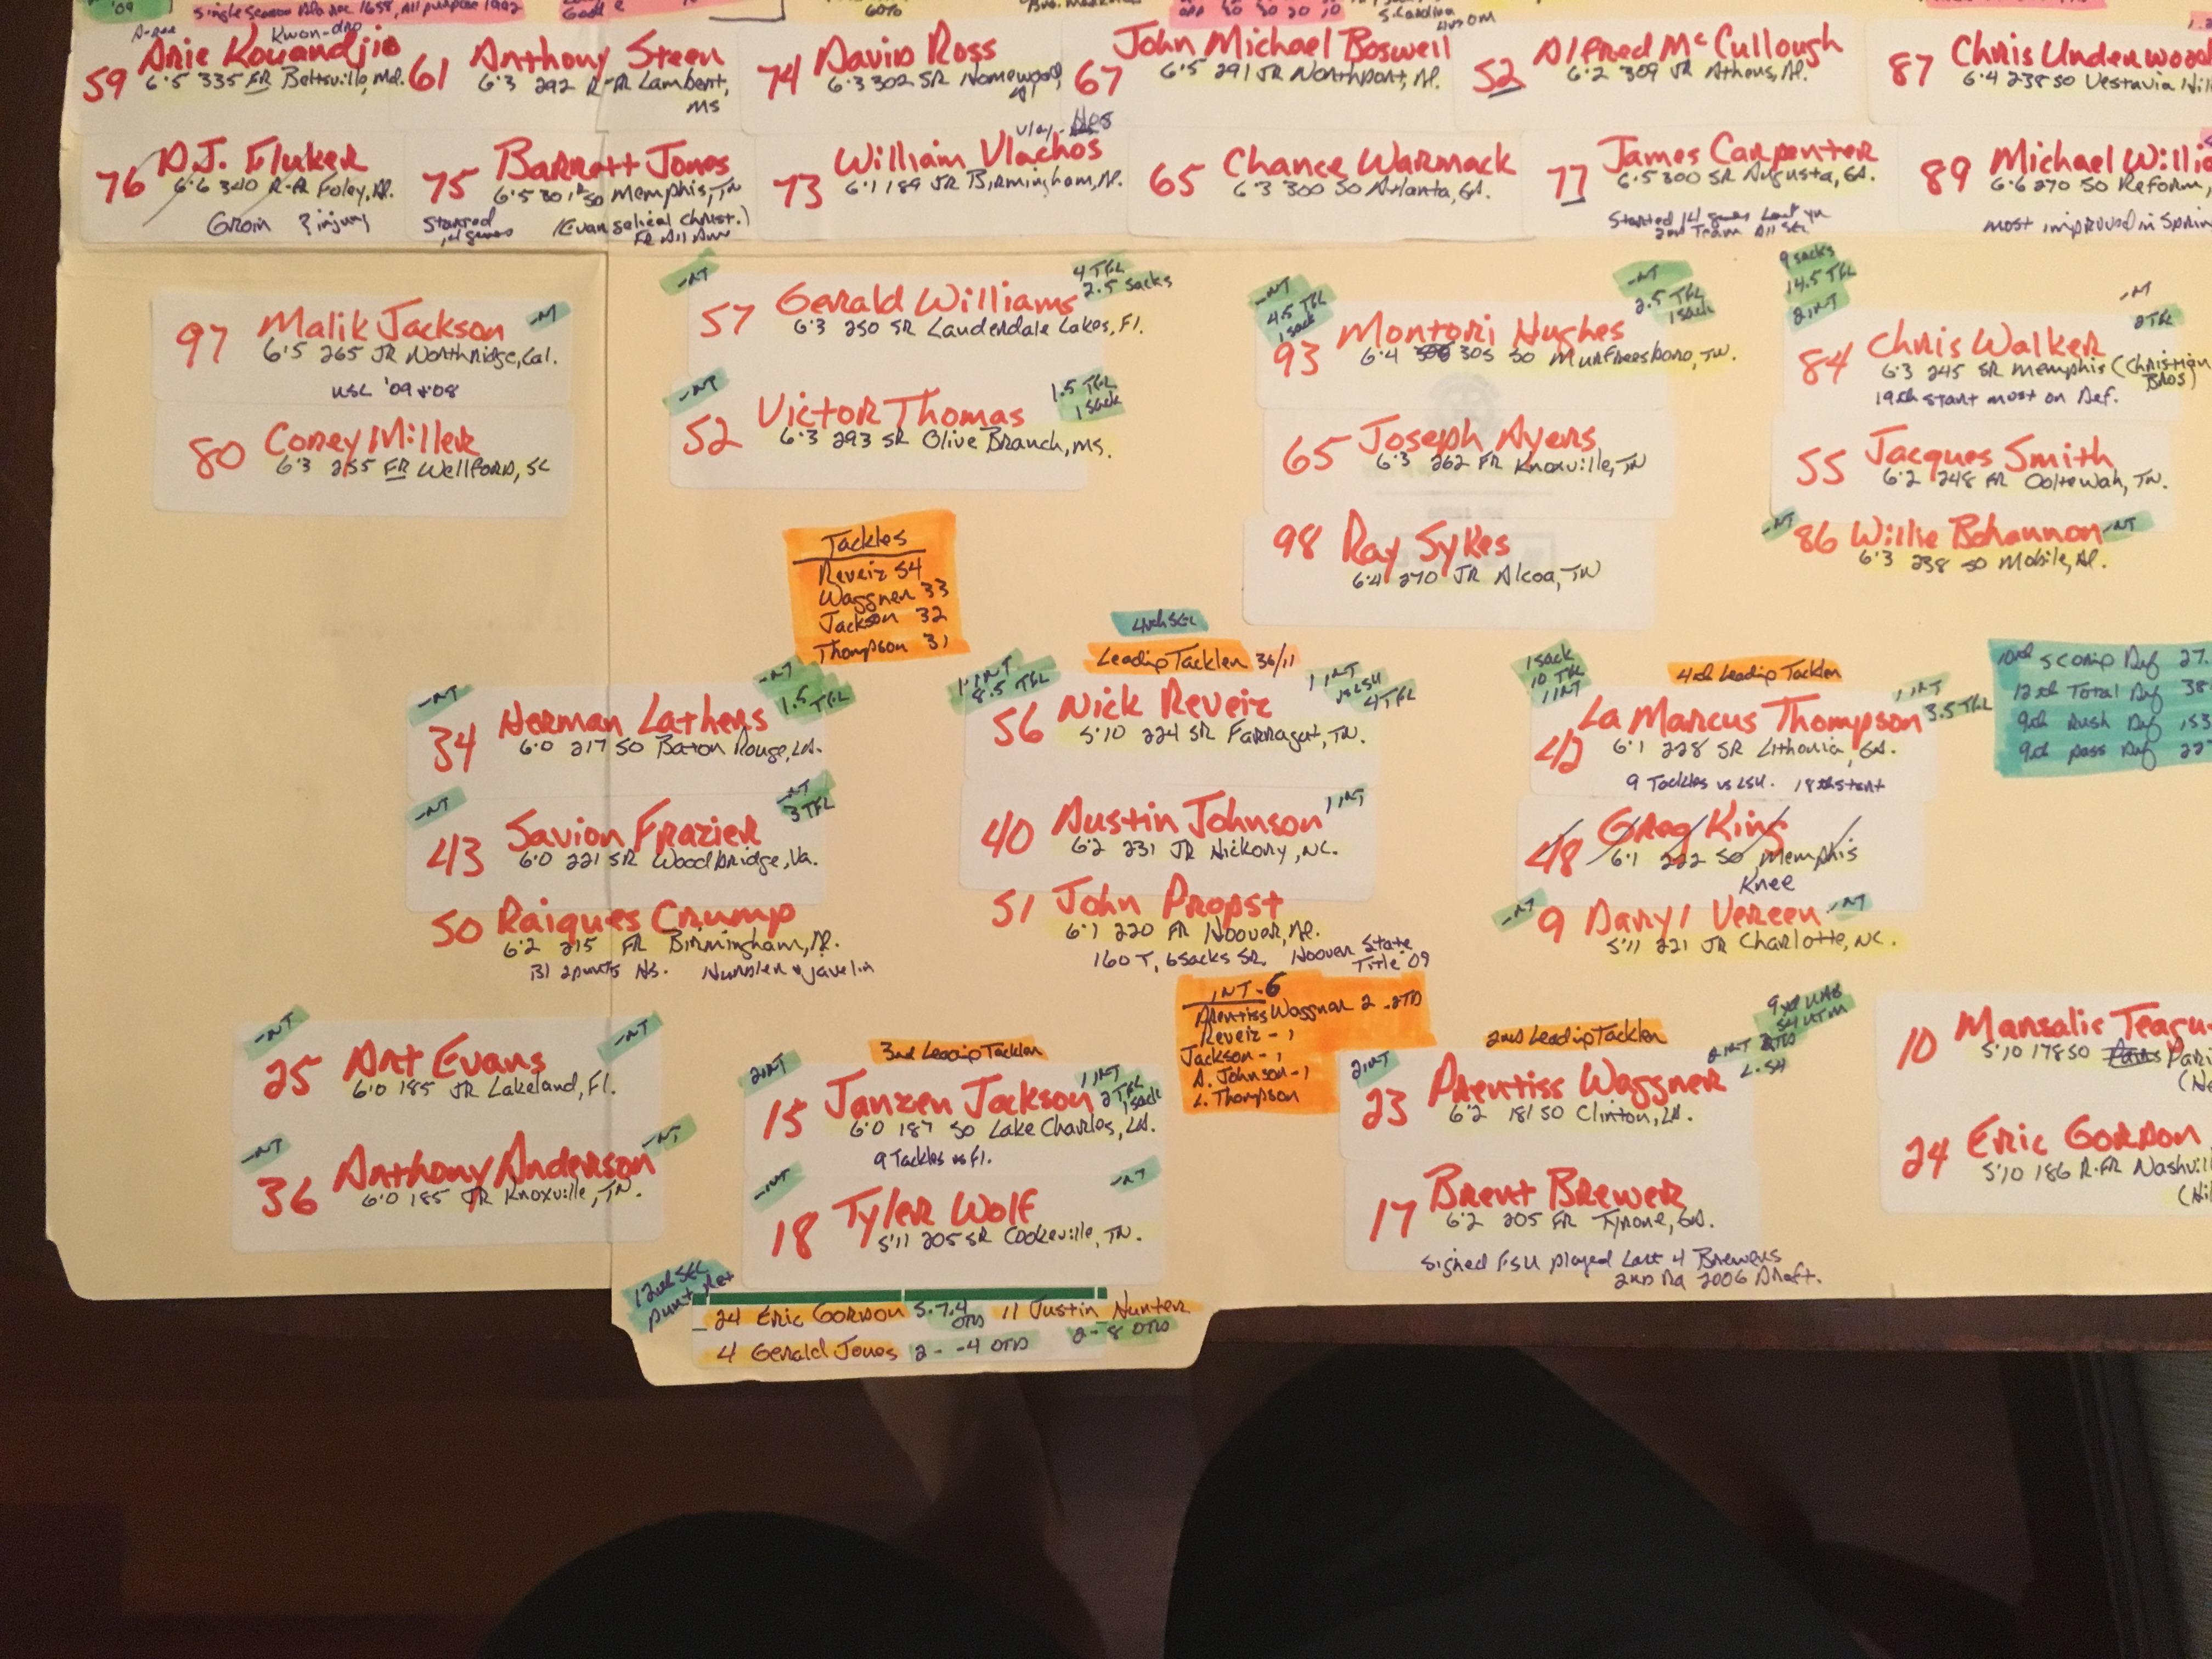 '09
Single Season
All purpose 1992
60%
50 50 20 10
S. Carolina
Kwon-dro
59 Arie Kouandjio
6'5 335 FR Beltsville, Md.
61 Anthony Steen
6'3 292 R-FR Lambert,
MS
74 David Ross
6'3 302 SR Homewood,
Al
67 John Michael Boswell
6'5 291 JR Northport, Al.
52 Alfred McCullough
6'2 309 JR Athens, Al.
87 Chris Underwood
6'4 238 SO Vestavia Hil
76 D.J. Fluker
6'6 340 R-FR Foley, Al.
Groin injury
75 Barrett Jones
6'5 301 SO Memphis, TN
Started
14 games
(Evangelical Christ.)
FR All Am
73 William Vlachos
6'1 189 JR Birmingham, Al.
65 Chance Warmack
6'3 300 SO Atlanta, GA.
77 James Carpenter
6'5 300 SR Augusta, GA.
Started 14 games last yr
2nd Team All SEC
89 Michael Willi
6'6 270 SO Reform,
most improved in Sprin
97 Malik Jackson -NT
6'5 265 JR Northridge, Cal.
USC '09 + 08
80 Corey Miller
6'3 255 FR Wellford, SC
-NT
57 Gerald Williams
4 TFL
2.5 sacks
6'3 250 SR Lauderdale Lakes, Fl.
-NT
52 Victor Thomas
1.5 TFL
1 sack
6'3 293 SR Olive Branch, MS.
-NT
4.5 TFL
1 sack
93 Montori Hughes
-NT
2.5 TFL
1 sack
6'4 305 SO Murfreesboro, TN.
65 Joseph Ayers
6'3 262 FR Knoxville, TN
98 Ray Sykes
6'4 270 JR Alcoa, TN
9 sacks
14.5 TFL
2 INT
84 Chris Walker
-NT
2 TFL
6'3 245 SR Memphis (Christian
Bros)
19th start most on Def.
55 Jacques Smith
6'2 248 FR Ooltewah, TN.
-NT 86 Willie Bohannon -NT
6'3 238 SO Mobile, Al.
Tackles
Reveiz 54
Waggner 33
Jackson 32
Thompson 31
-NT
34 Herman Lathers
-NT
1.5 TFL
6'0 217 SO Baton Rouge, LA.
-NT
43 Savion Frazier
-NT
3 TFL
6'0 221 SR Woodbridge, Va.
50 Raiques Crump
6'2 215 FR Birmingham, Al.
131 2 punts HS. Hurdler & javelin
4th SEC
Leading Tackler 36/11
1 INT
8.5 TFL
56 Nick Reveiz
1 INT
vs LSU
4 TFL
5'10 224 SR Farragut, TN.
40 Austin Johnson 1 INT
6'2 231 JR Hickory, NC.
51 John Propst
6'1 220 FR Hoover, Al.
160 T, 6 sacks SR. Hoover State
Title 09
1 sack
10 TFL
1 INT
4th Leading Tackler
42 La Marcus Thompson
1 INT
3.5 TFL
6'1 228 SR Lithonia, GA.
9 Tackles vs LSU. 18th start
48 Greg King
6'1 222 SO Memphis
Knee
-NT 9 Daryl Vereen -NT
5'11 221 JR Charlotte, NC.
10th Scoring Def 27.
12th Total Def 38
9th Rush Def 153
9th pass Def 22
-NT
25 Art Evans -NT
6'0 185 JR Lakeland, Fl.
-NT
36 Anthony Anderson -NT
6'0 185 JR Knoxville, TN.
3rd Leading Tackler
2 INT
15 Janzen Jackson
1 INT
2 TFL
1 sack
6'0 187 SO Lake Charles, LA.
9 Tackles vs Fl.
-INT
18 Tyler Wolf -NT
5'11 205 SR Cookeville, TN.
INT - 6
Prentiss Waggner 2 - 2TD
Reveiz - 1
Jackson - 1
A. Johnson - 1
L. Thompson
2nd Leading Tackler
2 INT
23 Prentiss Waggner
9 yd UAB
54 UTM
2 INT 2TD
6'2 181 SO Clinton, LA.
17 Brent Brewer
6'2 205 FR Tyrone, GA.
Signed FSU played Last 4 Brewers
2nd Rd 2006 Draft.
10 Marsalis Teagu
5'10 178 SO Pari
24 Eric Gordon
5'10 186 R-FR Nashvill
(Hil
12th SEC
Punt Ret
24 Eric Gordon 5.7.4 OTD 11 Justin Hunter
2 - 8 OTD
4 Gerald Jones 2 - -4 OTD